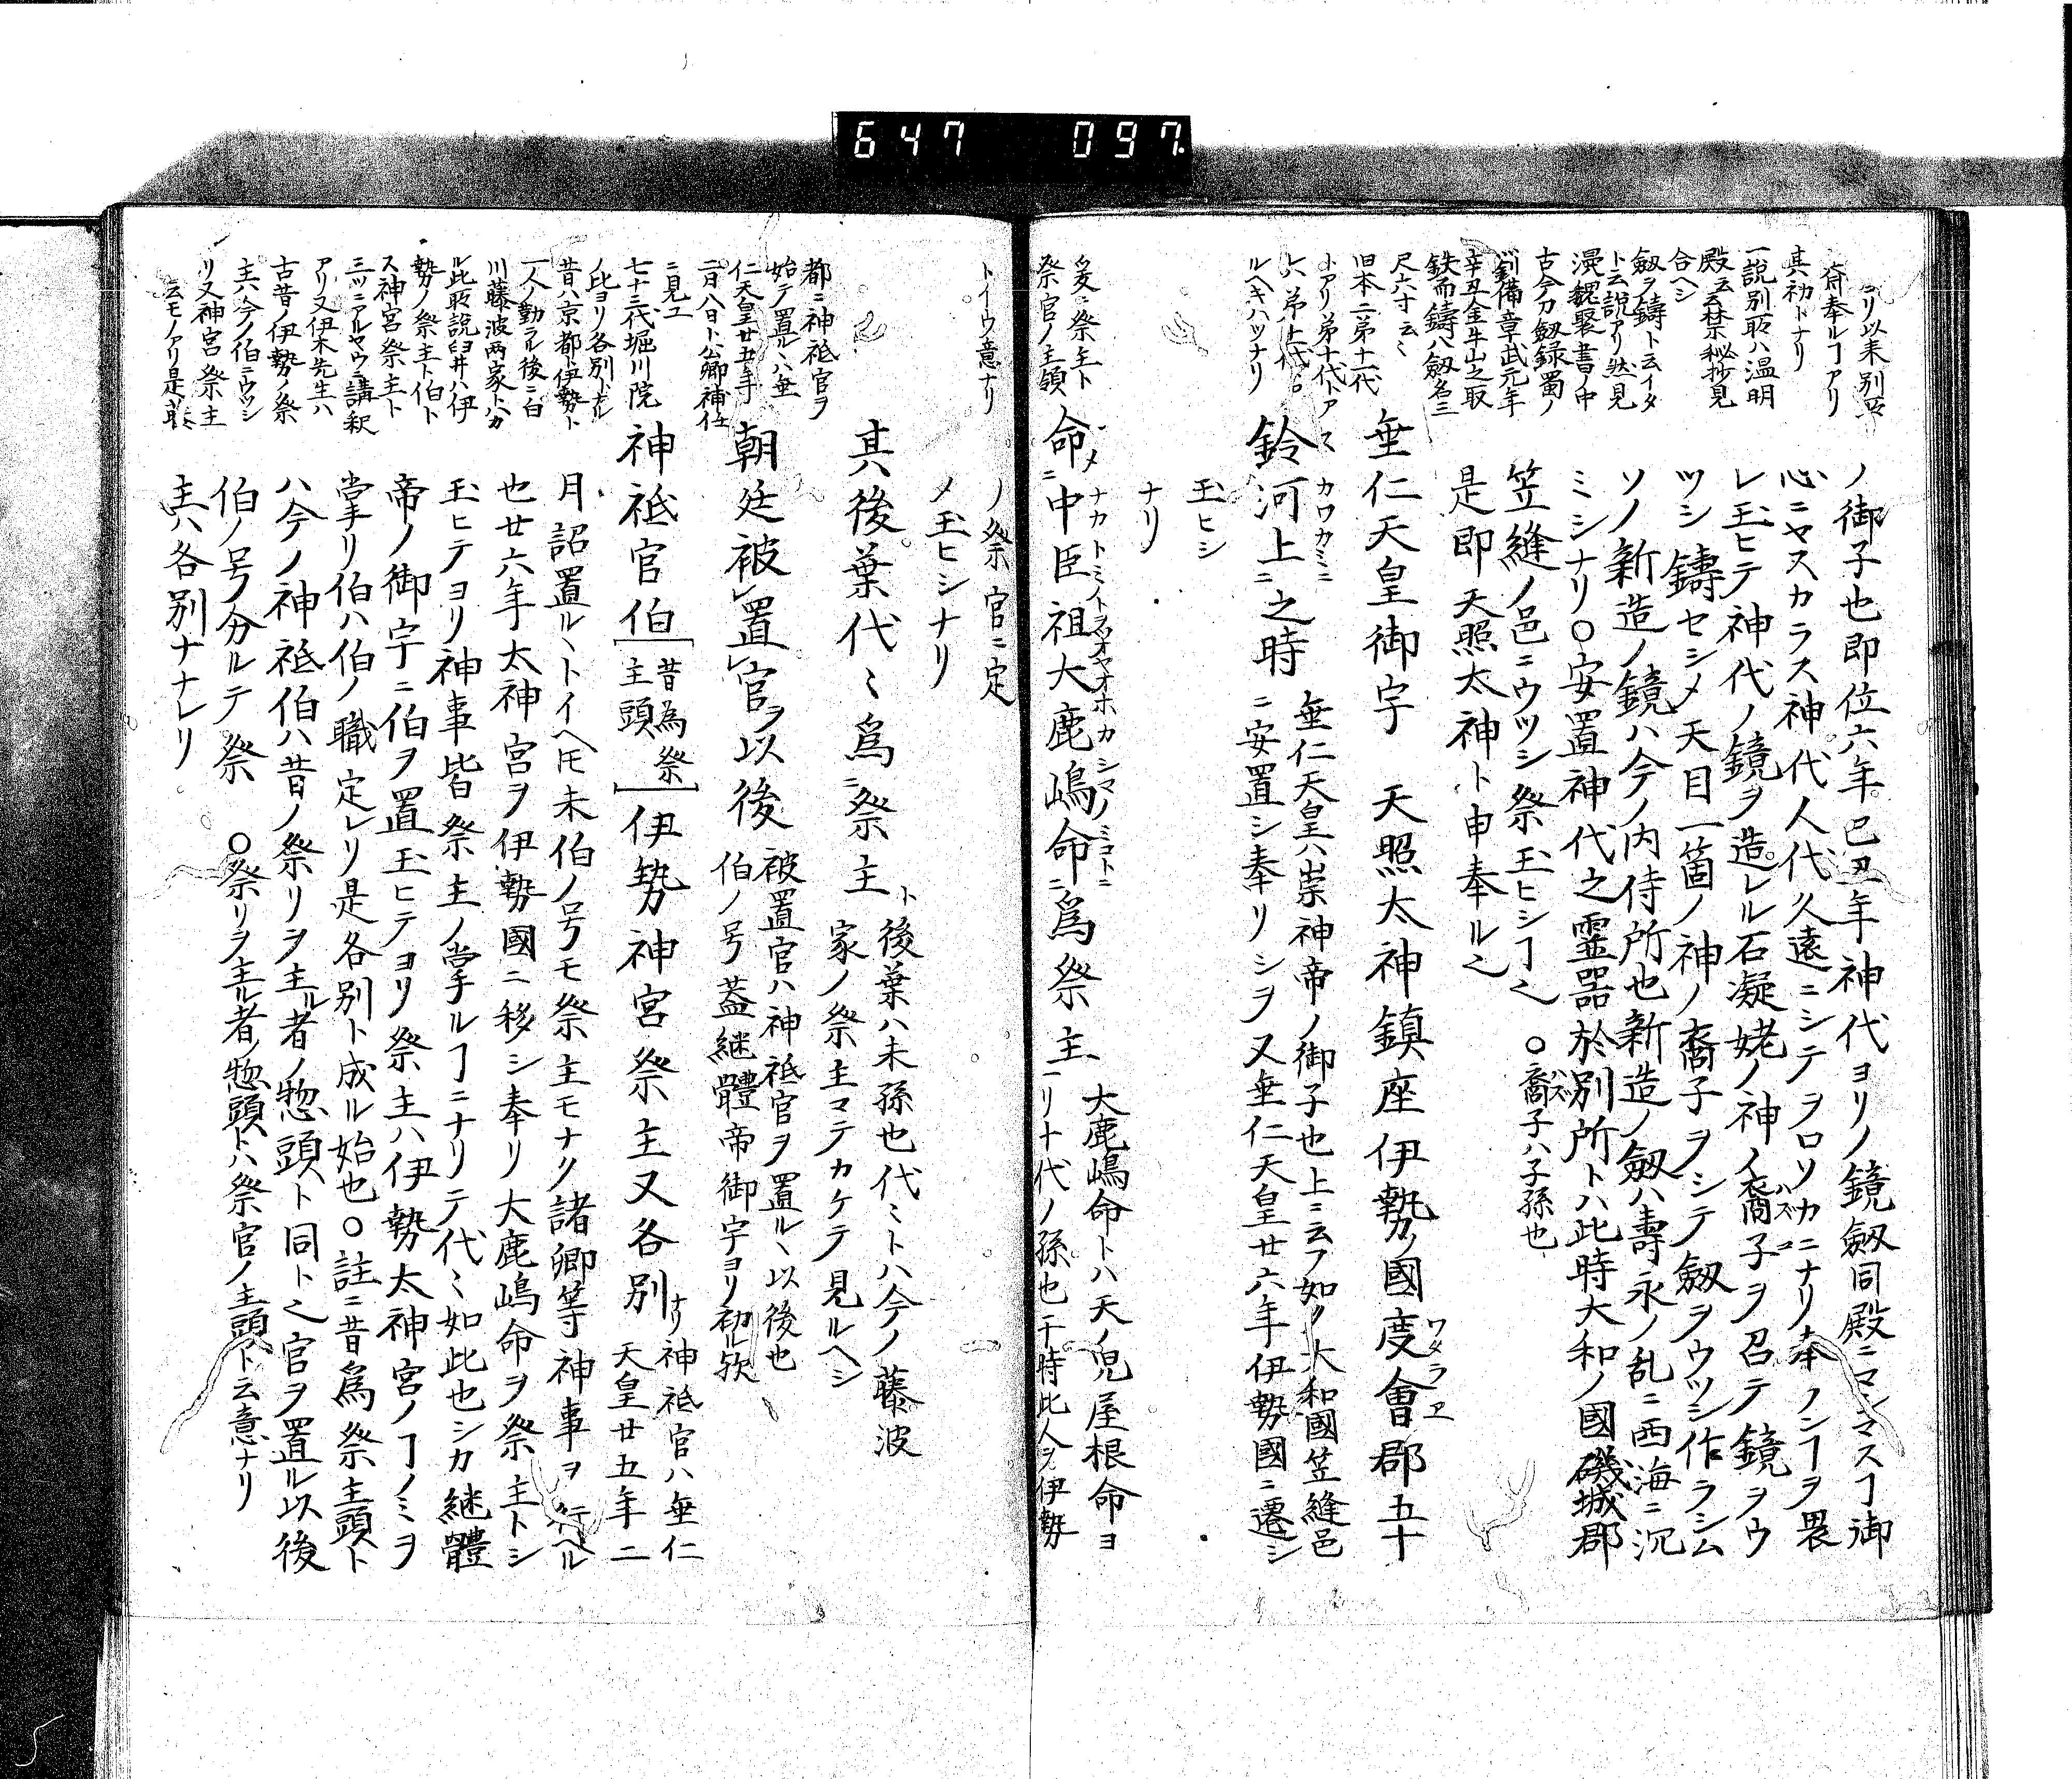 647 097
ヨリ以来別殿
ニ斎奉ルヿアリ
其初トナリ
一説別殿ハ温明
殿云云禁秘抄見
合ヘシ
劔ヲ鋳ト云イタ
ト云説アリ然見
漫叢書ノ中
古今刀劔録蜀ノ
劉備章武元年
辛丑金牛山之取
鉄而鋳八劔名三
尺六寸云ミ
旧本ニ弟十一代
トアリ弟十代トア
ルヘキハツナリ
ノ御子也即位六年己丑年神代ヨリノ鏡劔同殿ニマシマスヿ御
心ニヤスカラス神代人代久遠ニシテヲロソカニナリ奉ノンヿヲ畏
レ玉ヒテ神代ノ鏡ヲ造レル石凝姥ノ神ノ裔子ヲ召テ鏡ヲウ
ツシ鋳セシメ天目一箇ノ神ノ裔子ヲシテ劔ヲウツシ作ラシム
ソノ新造ノ鏡ハ今ノ内侍所也新造ノ劔ハ壽永ノ乱ニ西海ニ沉
ミシナリ〇安置神代之霊器於別所トハ此時大和ノ國磯城郡
笠縫ノ邑ニウツシ祭玉ヒシヿ之 〇裔子ハ子孫也
是即天照太神ト申奉ル之
垂仁天皇御宇 天照太神鎮座伊勢ノ國度會郡五十
鈴河上ニ之時 垂仁天皇ハ崇神帝ノ御子也上ニ云フ如ク大和國笠縫邑
ニ安置シ奉リシヲ又垂仁天皇廿六年伊勢國ニ遷シ
玉ヒシ
ナリ
命ニ中臣祖大鹿嶋命ニ為祭主 大鹿嶋命トハ天ノ児屋根命ヨ
リ十代ノ孫也干時此人ヲ伊勢
爰ニ祭主ト
祭官ノ主領
トイウ意ナリ
ノ祭官ニ定
メ玉ヒシナリ
其後葉代ミ為ニ祭主ト 後葉ハ末孫也代ミトハ今ノ藤波
家ノ祭主マテカケテ見ルヘシ
朝廷被レ置レ官ヲ以後 被置官ハ神祇官ヲ置ルヽ以後也
伯ノ号蓋継體帝御宇ヨリ初ル欤
神祇官伯 昔為祭
主頭 伊勢神宮祭主又各別ナリ 神祇官ハ垂仁
天皇廿五年二
月詔置ルヽトイヘ𪜈未伯ノ号モ祭主モナク諸卿等神事ヲ行ヘル
也廿六年太神宮ヲ伊勢國ニ移シ奉リ大鹿嶋命ヲ祭主トシ
玉ヒテヨリ神事皆祭主ノ掌ルヿニナリテ代ミ如此也シカ継體
帝ノ御宇ニ伯ヲ置玉ヒテヨリ祭主ハ伊勢太神宮ノヿノミヲ
掌リ伯ハ伯ノ職定レリ是各別ト成ル始也〇註ニ昔為祭主頭ト
ハ今ノ神祇伯ハ昔ノ祭リヲ主ル者ノ惣頭ト同ト之官ヲ置ル以後
伯ノ号分ルテ祭 〇祭リヲ主ル者ノ惣頭トハ祭官ノ主頭ト云意ナリ
主ハ各別ナナレリ
都ニ神祇官ヲ
始テ置ルヽハ垂
仁天皇廿五年
二月八日ト公卿補任
ニ見エ
七十三代堀川院
ノ比ヨリ各別トナル
昔ハ京都ト伊勢ト
一人ノ勤ラル後ニ白
川藤波両家トハカ
ル此取説臼井ハ伊
勢ノ祭主ト伯ト
ス神宮祭主ト
三ツニアルヤウニ講釈
アリ又伊木先生ハ
古昔ノ伊勢ノ祭
主ハ今ノ伯ニウツシ
リ又神宮祭主
云モノアリ是